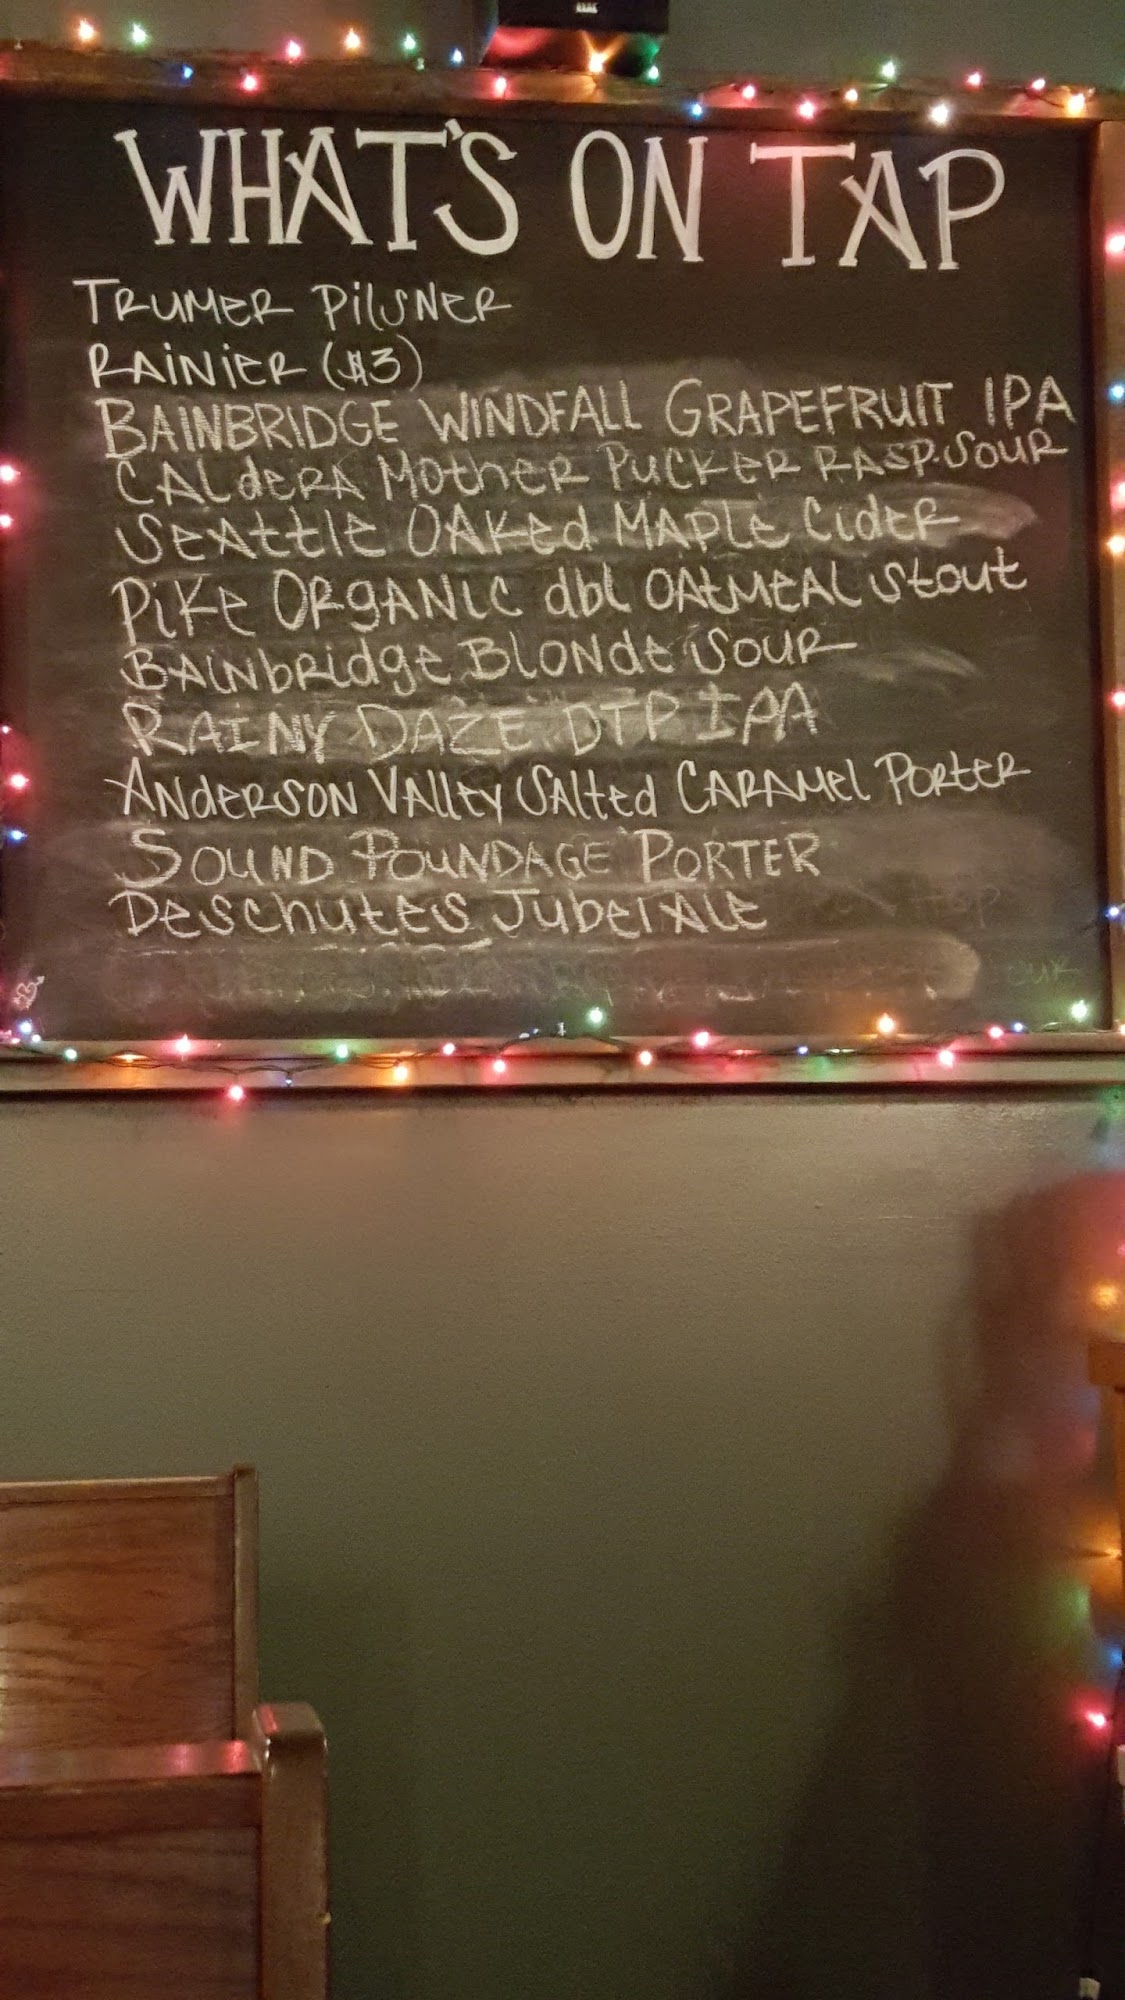 WHAT'S ON TAP
TRUMER PILSNER
RAINIER ($3)
BAINBRIDGE WINDFALL GRAPEFRUIT IPA
CALdERA MOtHER PUCKER RASP. SOUR
SEAttlE OAKEd MAPLE CidER
PiKe ORgANIC dbl OAtMEAL Stout
BAINbridgE BLONdE SOUR
RAINY DAZE DTP IPA
ANdERSON VAllEy SAltEd CARAMEl PORtER
SOUND POUNDAGE PORTER
DESchutES JubElAlE